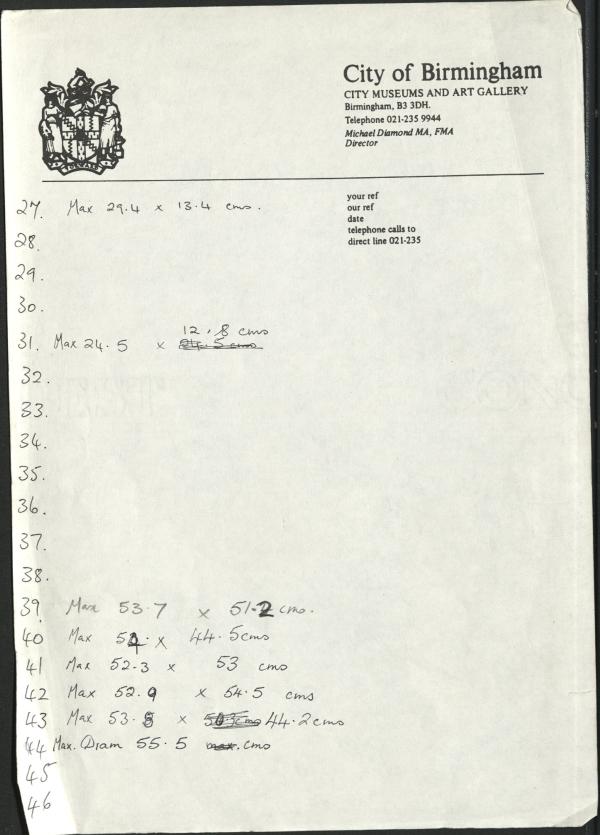 City of Birmingham
CITY MUSEUMS AND ART GALLERY
Birmingham, B3 3DH.
Telephone 021-235 9944
Michael Diamond MA, FMA
Director
FORWARD
your ref
our ref
date
telephone calls to
direct line 021-235
27. Max 29.4 x 13.4 cms.
28.
29.
30.
12.8 cms
31. Max 24.5 x 24.5 cms
32.
33.
34.
35.
36.
37.
38.
39. Max 53.7 x 51.2 cms.
40 Max x 44.5 cms
41 Max 52.3 x 53 cms
42 Max 52.9 x 54.5 cms
43 Max 53.8 x 44.2 cms
44 Max. Diam 55.5 max. cms
45
46